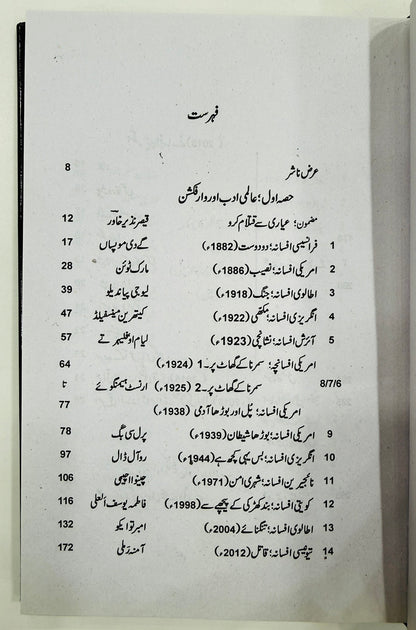 فہرست
عرض ناشر 8
حصہ اول؛ عالمی ادب اور وار فکشن
مضمون؛ عیاری سے قتلام کرو قیصر نذیر خاور 12
1 فرانسیسی افسانہ؛ دو دوست (1882ء) گے دی موپساں 17
2 امریکی افسانہ؛ نصیب (1886ء) مارک ٹوئن 28
3 اطالوی افسانہ؛ جنگ (1918ء) لیوجی پیاندیلو 39
4 انگریزی افسانہ؛ مکھی (1922ء) کیتھرین مینسفیلڈ 47
5 آئرش افسانہ؛ نشانچی (1923ء) لیام او فلیہرٹے 57
امریکی افسانچہ؛ سمرنا کے گھاٹ پر۔1 (1924ء) 64
8/7/6 سمرنا کے گھاٹ پر۔2 (1925ء) ارنسٹ ہیمنگوئے تا
امریکی افسانہ؛ پُل اور بوڑھا آدمی (1938ء) 77
9 امریکی افسانہ؛ بوڑھا شیطان (1939ء) پرل سی بک 78
10 انگریزی افسانہ؛ بس یہی کچھ ہے (1944ء) روآل ڈال 97
11 نائجیرین افسانہ؛ شہری امن (1971ء) چینوا اچیبی 106
12 کویتی افسانہ؛ بند کھڑکی کے پیچھے سے (1998ء) فاطمہ یوسف العلی 116
13 اطالوی افسانہ؛ تنگنائے (2004ء) امبرتو ایکو 132
14 تیونیسی افسانہ؛ قاتل (2012ء) آمنہ رملی 172